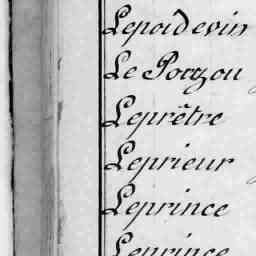 Lepoidevin
Le Porzou
Leprêtre
Leprieur
Leprince
Leprince